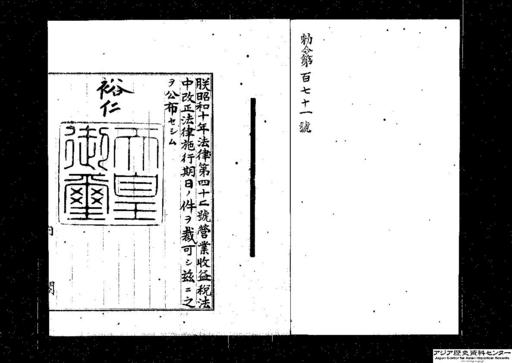 勅令第百七十一號
朕昭和十年法律第四十二號營業收益税法
中改正法律施行期日ノ件ヲ裁可シ茲ニ之
ヲ公布セシム
裕仁
天皇
御璽
内
閣
アジア歴史資料センター
Japan Center for Asian Historical Records